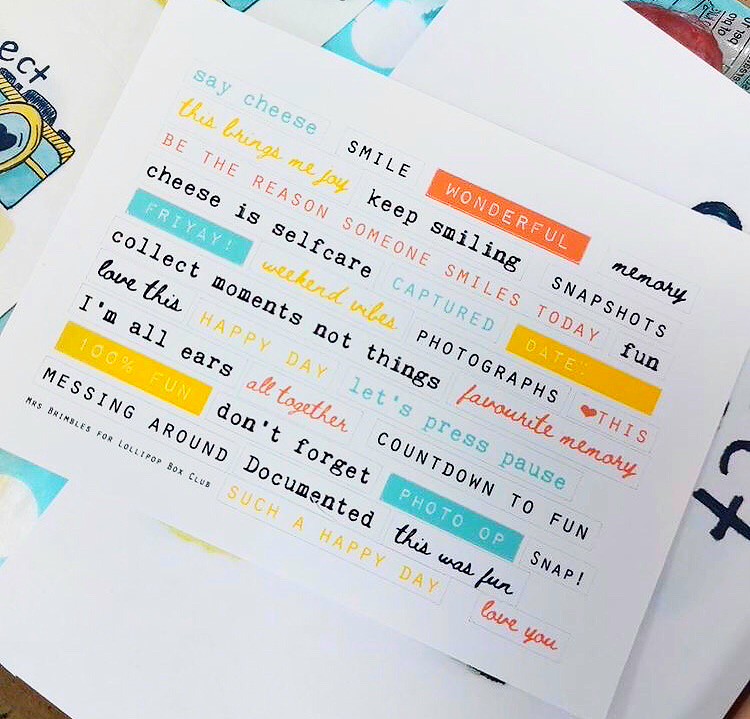 ect
say cheese SMILE WONDERFUL memory
this brings me joy keep smiling SNAPSHOTS
BE THE REASON SOMEONE SMILES TODAY fun
cheese is selfcare CAPTURED DATE:
FRIYAY! weekend vibes PHOTOGRAPHS ❤THIS
collect moments not things favourite memory
love this HAPPY DAY let's press pause
I'm all ears all together COUNTDOWN TO FUN
100% FUN don't forget PHOTO OP SNAP!
MESSING AROUND Documented this was fun
MRS BRIMBLES FOR LOLLIPOP BOX CLUB SUCH A HAPPY DAY love you